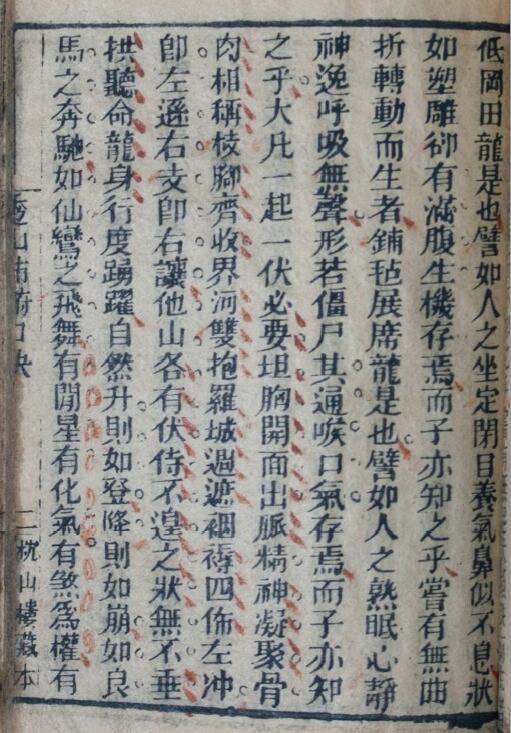 低岡田龍是也譬如人之坐定閉目養氣鼻似不息狀
如塑雕卻有滿腹生機存焉而子亦知之乎嘗有無曲
折轉動而生者鋪毡展席龍是也譬如人之熟眠心靜
神逸呼吸無聲形若僵尸其通喉口氣存焉而子亦知
之乎大凡一起一伏必要坦胸開面出脈精神凝聚骨
肉相稱枝腳齊收界河雙抱羅城過遮裀褥四佈左冲
卽左遜右支卽右讓他山各有伏侍不遑之狀無不垂
拱聽命龍身行度踴躍自然升則如登降則如崩如良
馬之奔馳如仙鸞之飛舞有閒星有化氣有煞爲權有
山 口訣
二 枕山樓藏本